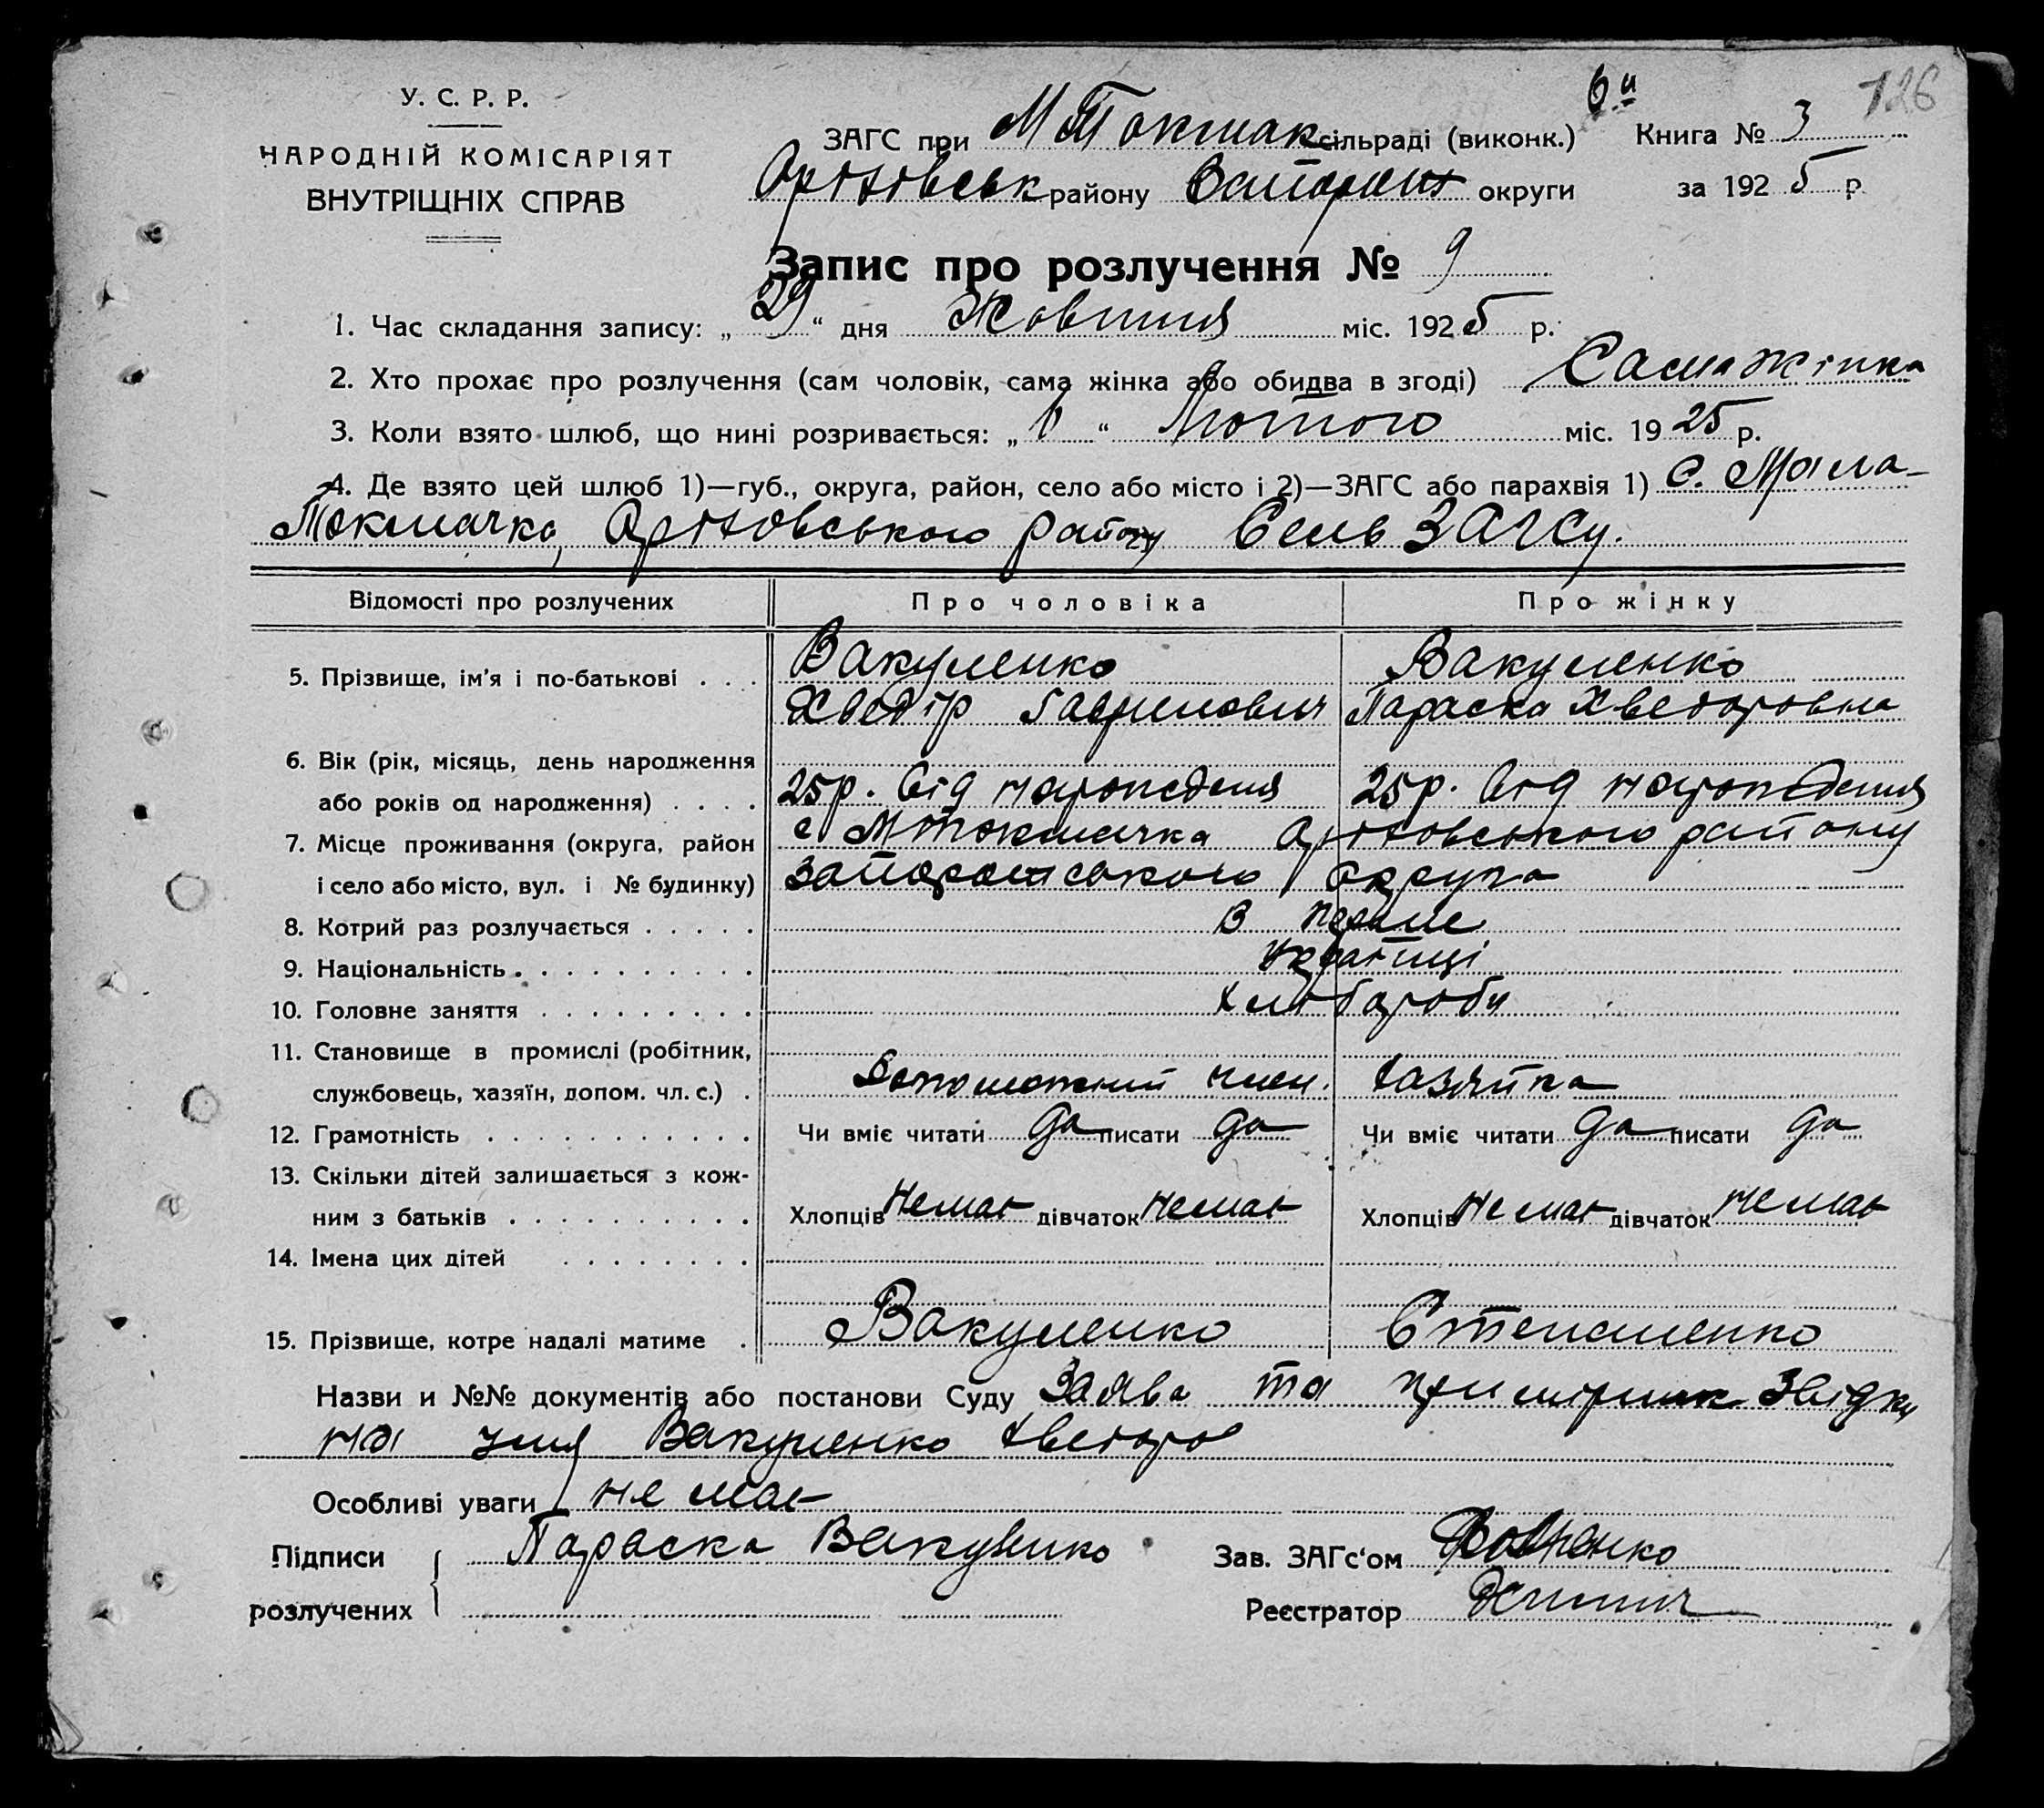 126
6й
У. С. Р. Р.
НАРОДНІЙ КОМІСАРІЯТ
ВНУТРІШНІХ СПРАВ
ЗАГС при М Токмак сільраді (виконк.) Книга № 3
Оріхівськ району Запоріж округи за 1925 р
Запис про розлучення № 9
1. Час складання запису: „29“ дня Жовтня міс. 1925 р.
2. Хто прохає про розлучення (сам чоловік, сама жінка або обидва в згоді) Сама жінка
3. Коли взято шлюб, що нині розривається: „6“ Лютого міс. 1925 р.
4. Де взято цей шлюб 1)—губ., округа, район, село або місто і 2)—ЗАГС або парахвія 1) с. Мала-
Токмачка, Оріховського району Сель ЗАГСу.
Відомості про розлучених Про чоловіка Про жінку
5. Прізвище, ім'я і по-батькові . . . Вакуленко Вакуленко
Хведір Гаврилович Параска Хведоровна
6. Вік (рік, місяць, день народження
або років од народження) . . . . 25р. від народження 25р. від народження
7. Місце проживання (округа, район с МТокмачка Оріховського району
і село або місто, вул. і № будинку) Запорожського Округа
8. Котрий раз розлучається . . . . . В перше
9. Національність . . . . . . . . . . Українці
10. Головне заняття . . . . . . . . . Хлібороби
11. Становище в промислі (робітник,
службовець, хазяїн, допом. чл. с.) . Допоможний член. Хазяйка
12. Грамотність . . . . . . . . . . . Чи вміє читати да писати да Чи вміє читати да писати да
13. Скільки дітей залишається з кож-
ним з батьків . . . . . . . . . . Хлопців Немає дівчаток немає Хлопців Немає дівчаток немає
14. Імена цих дітей . . . . . . . .
15. Прізвище, котре надалі матиме . Вакуленко Степаненко
Назви и №№ документів або постанови Суду Заява та
на имя Вакуленко Хведора
Особливі уваги не має
Підписи Параска Вакуленко Зав. ЗАГс'ом
розлучених Реєстратор